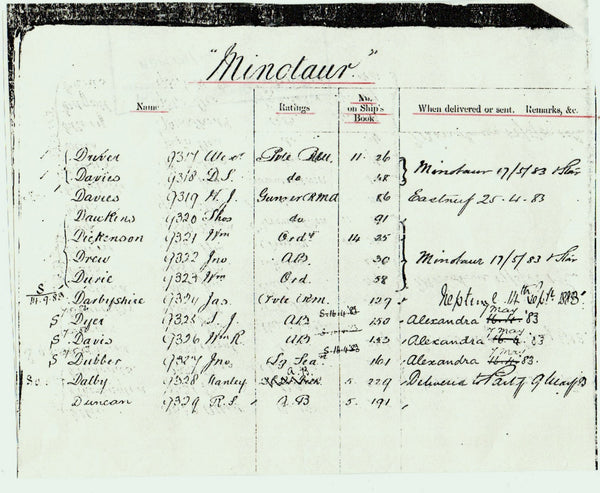 "Minotaur"
Name Ratings No. on Ship's Book When delivered or sent. Remarks, &c.
Driver 9317 Pvte RM 11 26
Davies 9318 D.S. do 48 Minotaur 17/5/83 & Star
Davies 9319 W. J. Gunner RMA 86 Eastney 25.4.83
Dawkins 9320 Thos do 91
Dickenson 9321 Wm Ordy 14 25
Drew 9322 Jno AB 30 Minotaur 17/5/83 & Star
Durie 9323 Wm Ord. 58
S 14.9.83 Darbyshire 9324 Jas. Pvte RM. 129 Neptune 14th Septr 1883
S Dyer 9325 S. J. AB S.16.4.83 150 Alexandra 7 May 16.4 '83
S Davis 9326 Wm R. AB 153 Alexandra 7 May 16.4 '83
S Dubber 9327 Jno. Lg Sea S.16.4.83 161 Alexandra 7 May 16.4 83.
Dalby 9328 A.B. 5. 229 Delivered to Party 9
Duncan 9329 R. S. AB 5. 191